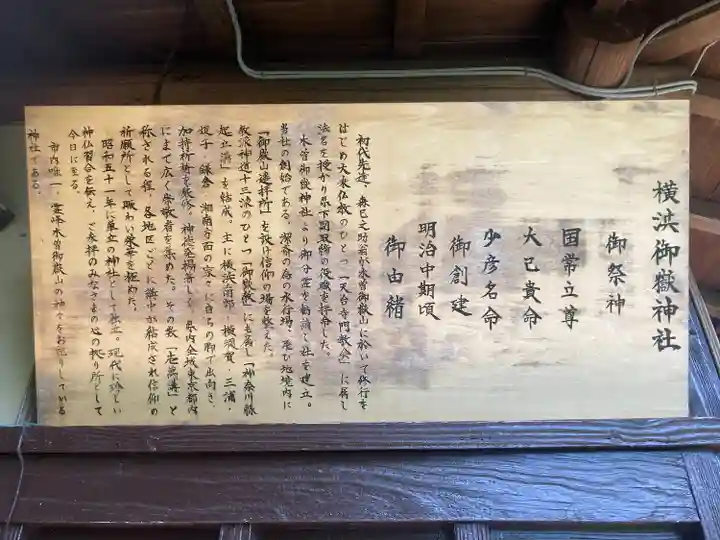 横浜御嶽神社
御祭神
国常立尊
大己貴命
少彦名命
御創建
明治中期頃
御由緒
初代先達、森巳之助翁が木曽御嶽山に於いて修行を
はじめ大乗仏教のひとつ「天台寺門教会」に属し
法名を授かり県下副取締の役職を拝命した。
木曽御嶽神社より御分霊を勧請し社を建立。
当社の創始である。潔斎の為の水行場、及び境内に
「御嶽山遥拝所」を設け信仰の場を整えた。
教派神道十三派のひとつ「御嶽教」にも属し「神奈川縣
起立講」を結成。主に横浜南部、横須賀・三浦・
逗子・鎌倉・湘南方面の家々に自らの脚で出向き、
加持祈祷を厳修。神徳発揚著しく、県内全域東京都内
にまで広く崇敬者を集めた。その数「壱萬講」と
称される程、各地区ごとに講社が結成され信仰の
祈願所として賑わい栄華を極めた。
昭和五十一年に単立の神社として独立。現代に珍しい
神仏習合を伝え、ご参拝のみなさまの心の拠り所として
今日に至る。
市内唯一、霊峰木曽御嶽山の神々をお祀りしている
神社である。